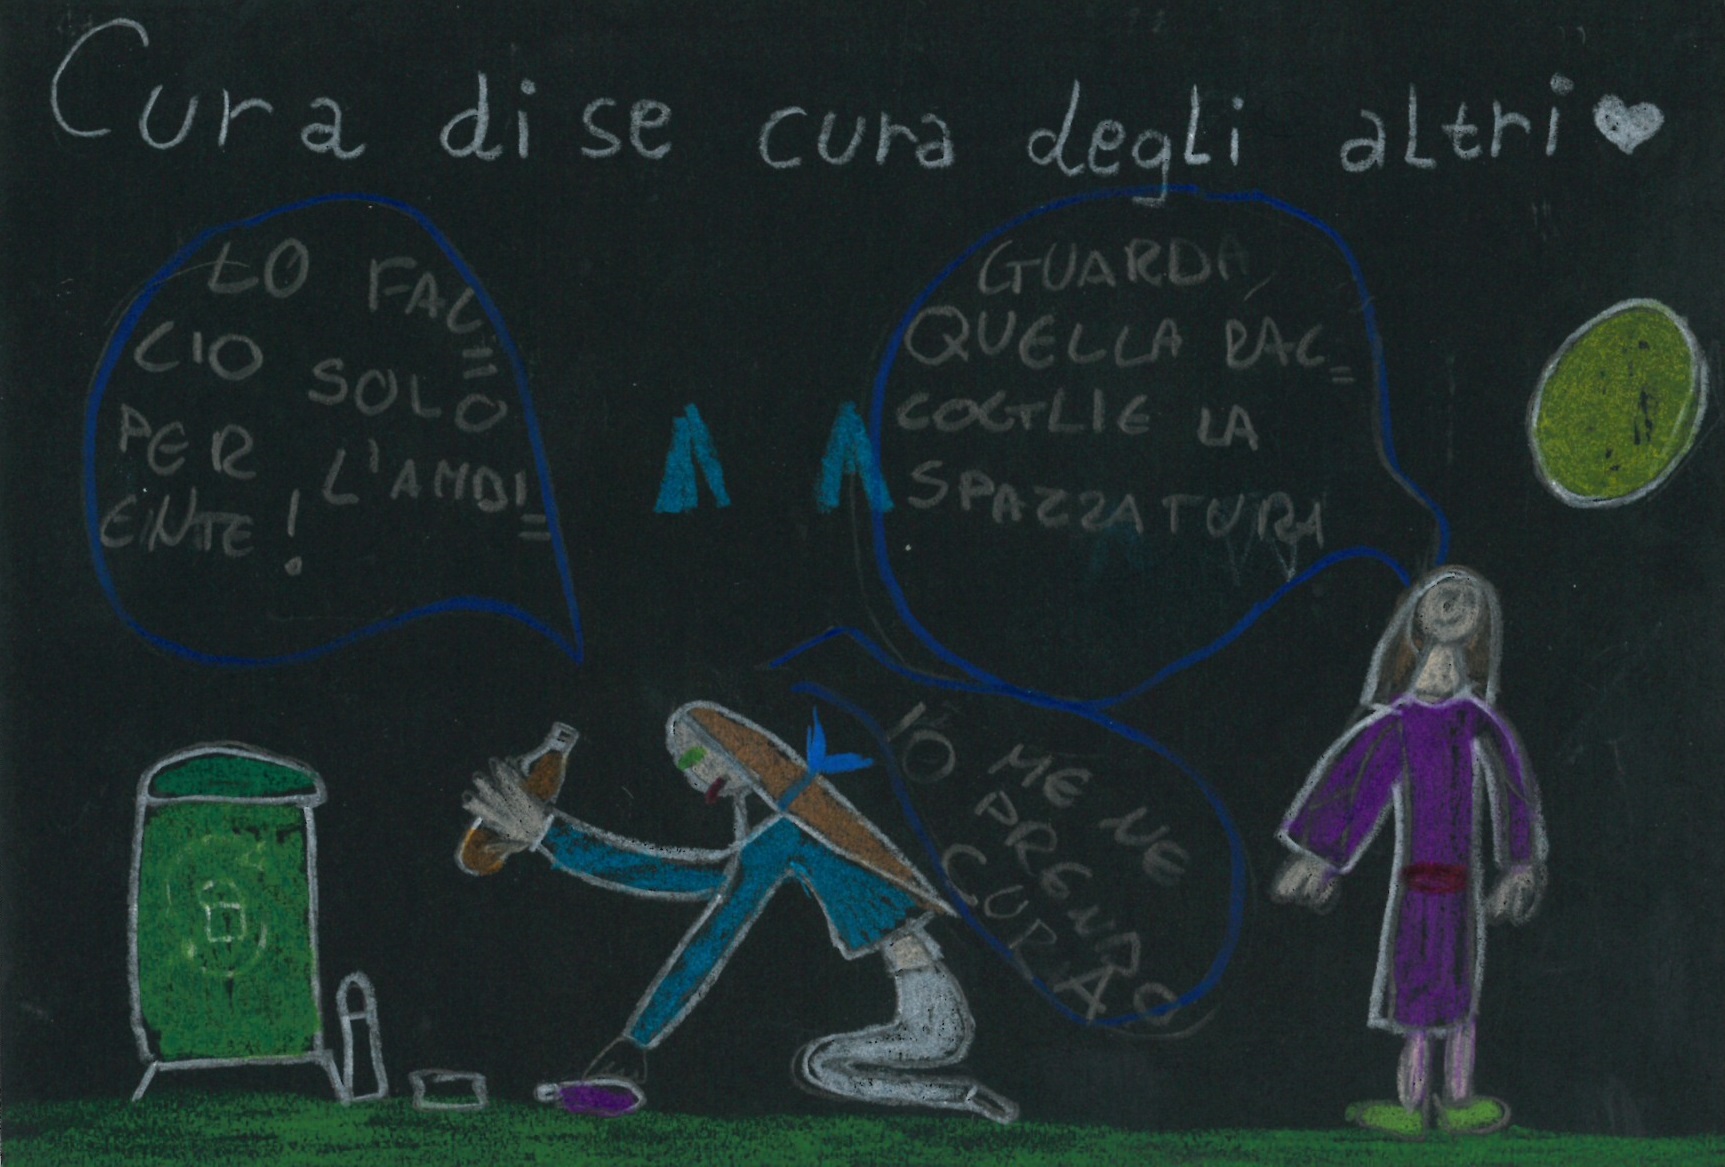 Cura di se cura degli altri
LO FAC=
CIO SOLO
PER L'AMBI=
ENTE!
GUARDA,
QUELLA RAC=
COGLIE LA
SPAZZATURA
IO ME NE
PRENDO
CURA